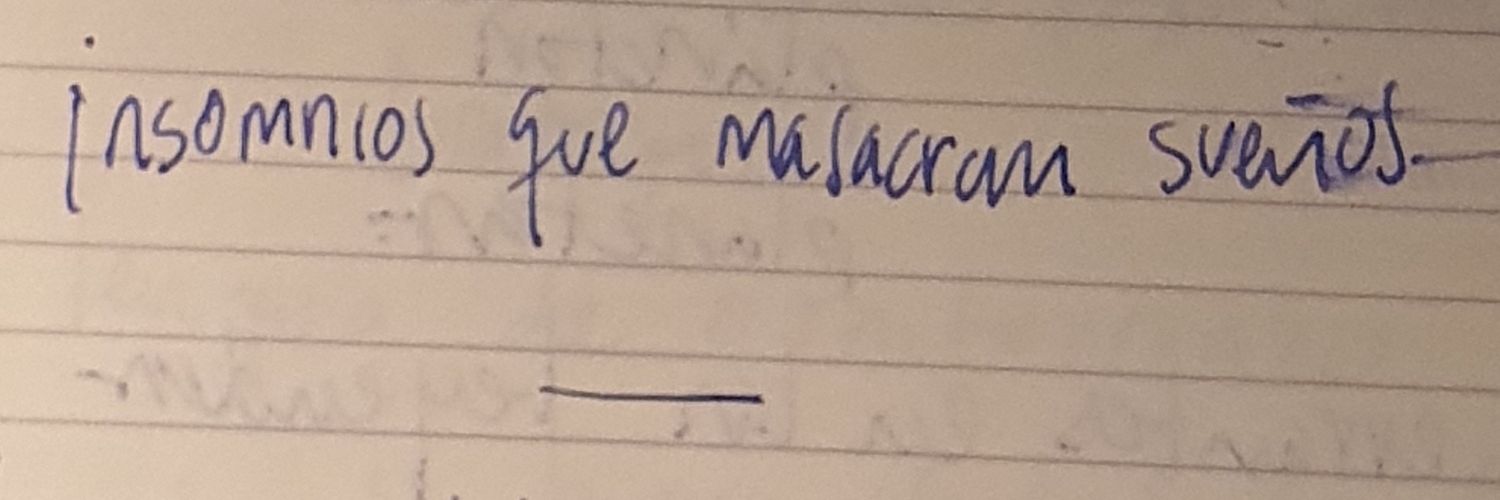 insomnios que masacran sueños.-